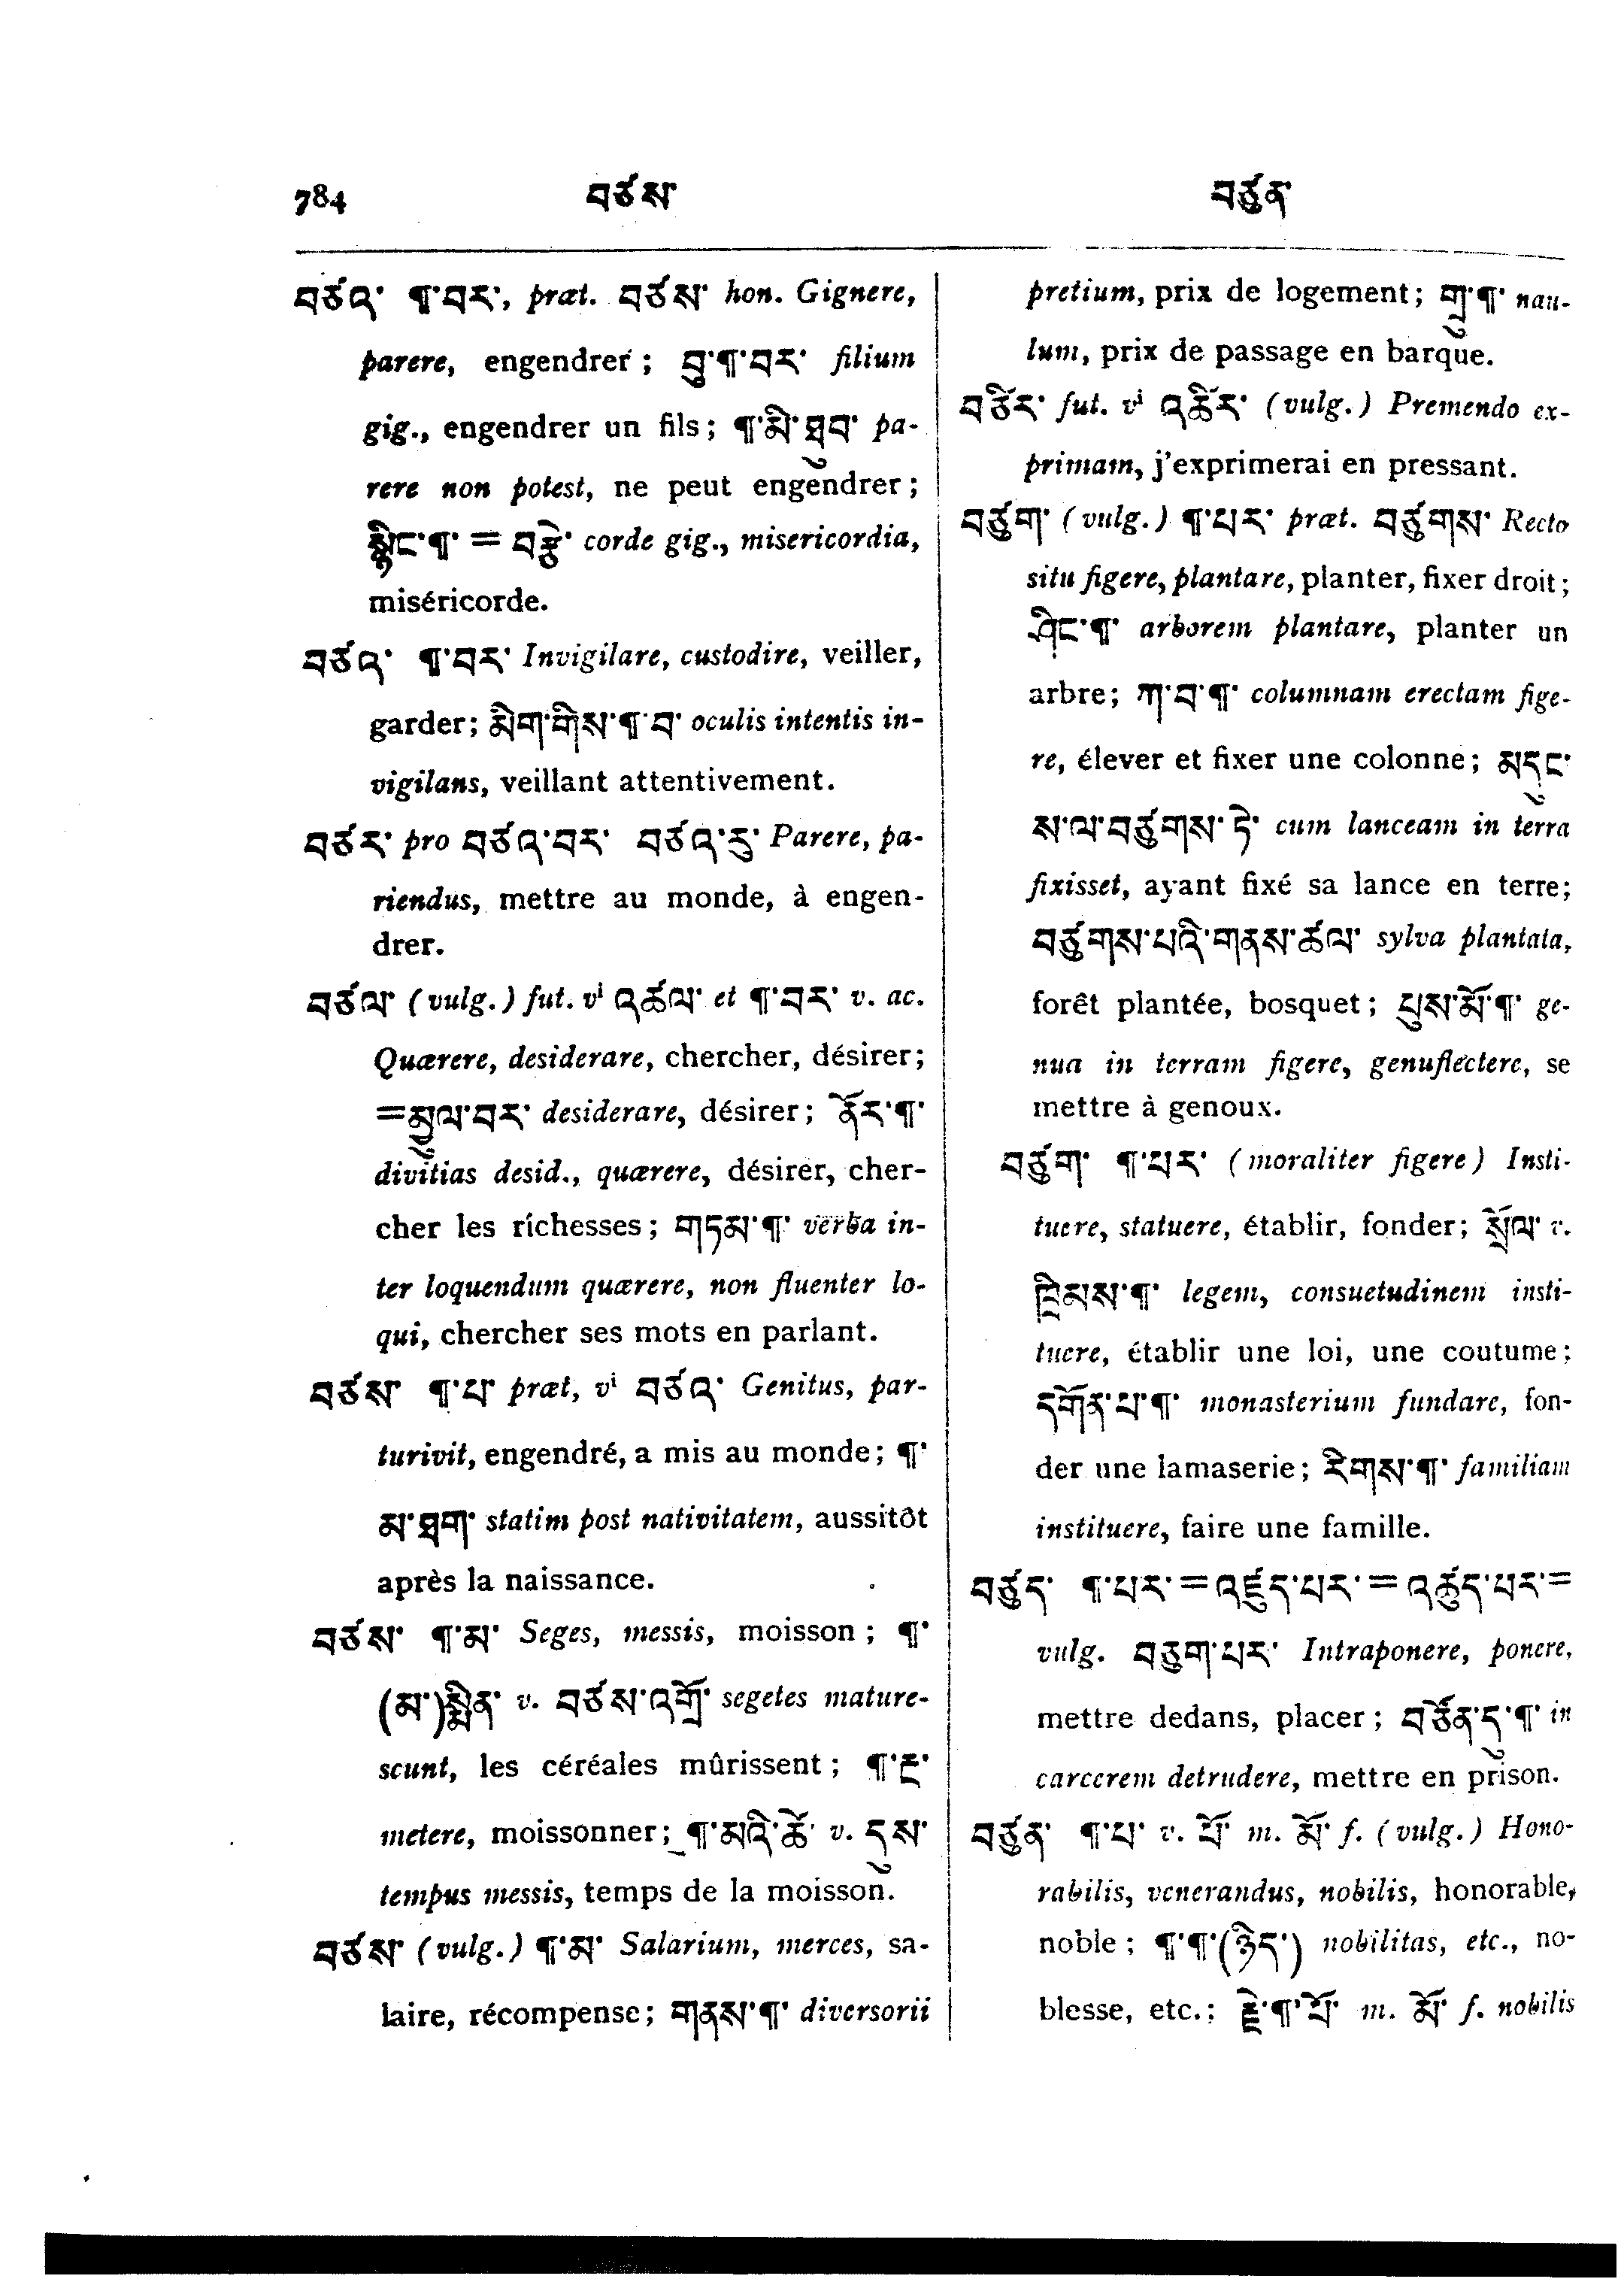 784 བཙས་ བཙུན་
བཙའ་ ¶་བར་, præt. བཙས་ hon. Gignere,
parere, engendrer; བུ་¶་བར་ filium
gig., engendrer un fils; ¶་མི་ཐུབ་ pa-
rere non potest, ne peut engendrer;
སྙིང་¶་ = བརྩེ་ corde gig., misericordia,
miséricorde.
བཙའ་ ¶་བར་ Invigilare, custodire, veiller,
garder; མིག་གིས་¶་བ་ oculis intentis in-
vigilans, veillant attentivement.
བཙར་ pro བཙའ་བར་ བཙའ་རུ་ Parere, pa-
riendus, mettre au monde, à engen-
drer.
བཙལ་ (vulg.) fut. vⁱ འཚལ་ et ¶་བར་ v. ac.
Quærere, desiderare, chercher, désirer;
=མྱུལ་བར་ desiderare, désirer; ནོར་¶་
divitias desid., quærere, désirer, cher-
cher les richesses; གཏམ་¶་ verba in-
ter loquendum quærere, non fluenter lo-
qui, chercher ses mots en parlant.
བཙས་ ¶་པ་ præt, vⁱ བཙའ་ Genitus, par-
turivit, engendré, a mis au monde; ¶་
མ་ཐག་ statim post nativitatem, aussitôt
après la naissance.
བཙས་ ¶་མ་ Seges, messis, moisson; ¶་
(མ་)སྨིན་ v. བཙས་འགྲོ་ segetes mature-
scunt, les céréales mûrissent; ¶་རྔ་
metere, moissonner; ¶་མའི་ཚེ་ v. དུས་
tempus messis, temps de la moisson.
བཙས་ (vulg.) ¶་མ་ Salarium, merces, sa-
laire, récompense; གནས་¶་ diversorii
pretium, prix de logement; གྲུ་¶་ nau-
lum, prix de passage en barque.
བཙིར་ fut. vⁱ འཚིར་ (vulg.) Premendo ex-
primam, j'exprimerai en pressant.
བཙུག་ (vulg.) ¶་པར་ præt. བཙུགས་ Recto
situ figere, plantare, planter, fixer droit;
ཤིང་¶་ arborem plantare, planter un
arbre; ཀ་བ་¶་ columnam erectam fige-
re, élever et fixer une colonne; མདུང་
ས་ལ་བཙུགས་ཏེ་ cum lanceam in terra
fixisset, ayant fixé sa lance en terre;
བཙུགས་པའི་གནས་ཚལ་ sylva plantata,
forêt plantée, bosquet; པུས་མོ་¶་ ge-
nua in terram figere, genuflectere, se
mettre à genoux.
བཙུག་ ¶་པར་ (moraliter figere) Insti-
tuere, statuere, établir, fonder; སྲོལ་ v.
ཁྲིམས་¶་ legem, consuetudinem insti-
tuere, établir une loi, une coutume;
དགོན་པ་¶་ monasterium fundare, fon-
der une lamaserie; རིགས་¶་ familiam
instituere, faire une famille.
བཙུད་ ¶་པར་=འཛུད་པར་=འཚུད་པར་=
vulg. བཅུག་པར་ Intraponere, ponere,
mettre dedans, placer; བཙོན་དུ་¶་ in
carcerem detrudere, mettre en prison.
བཙུན་ ¶་པ་ v. པོ་ m. མོ་ f. (vulg.) Hono-
rabilis, venerandus, nobilis, honorable,
noble; ¶་¶་(ཉིད་) nobilitas, etc., no-
blesse, etc.; རྗེ་¶་པོ་ m. མོ་ f. nobilis